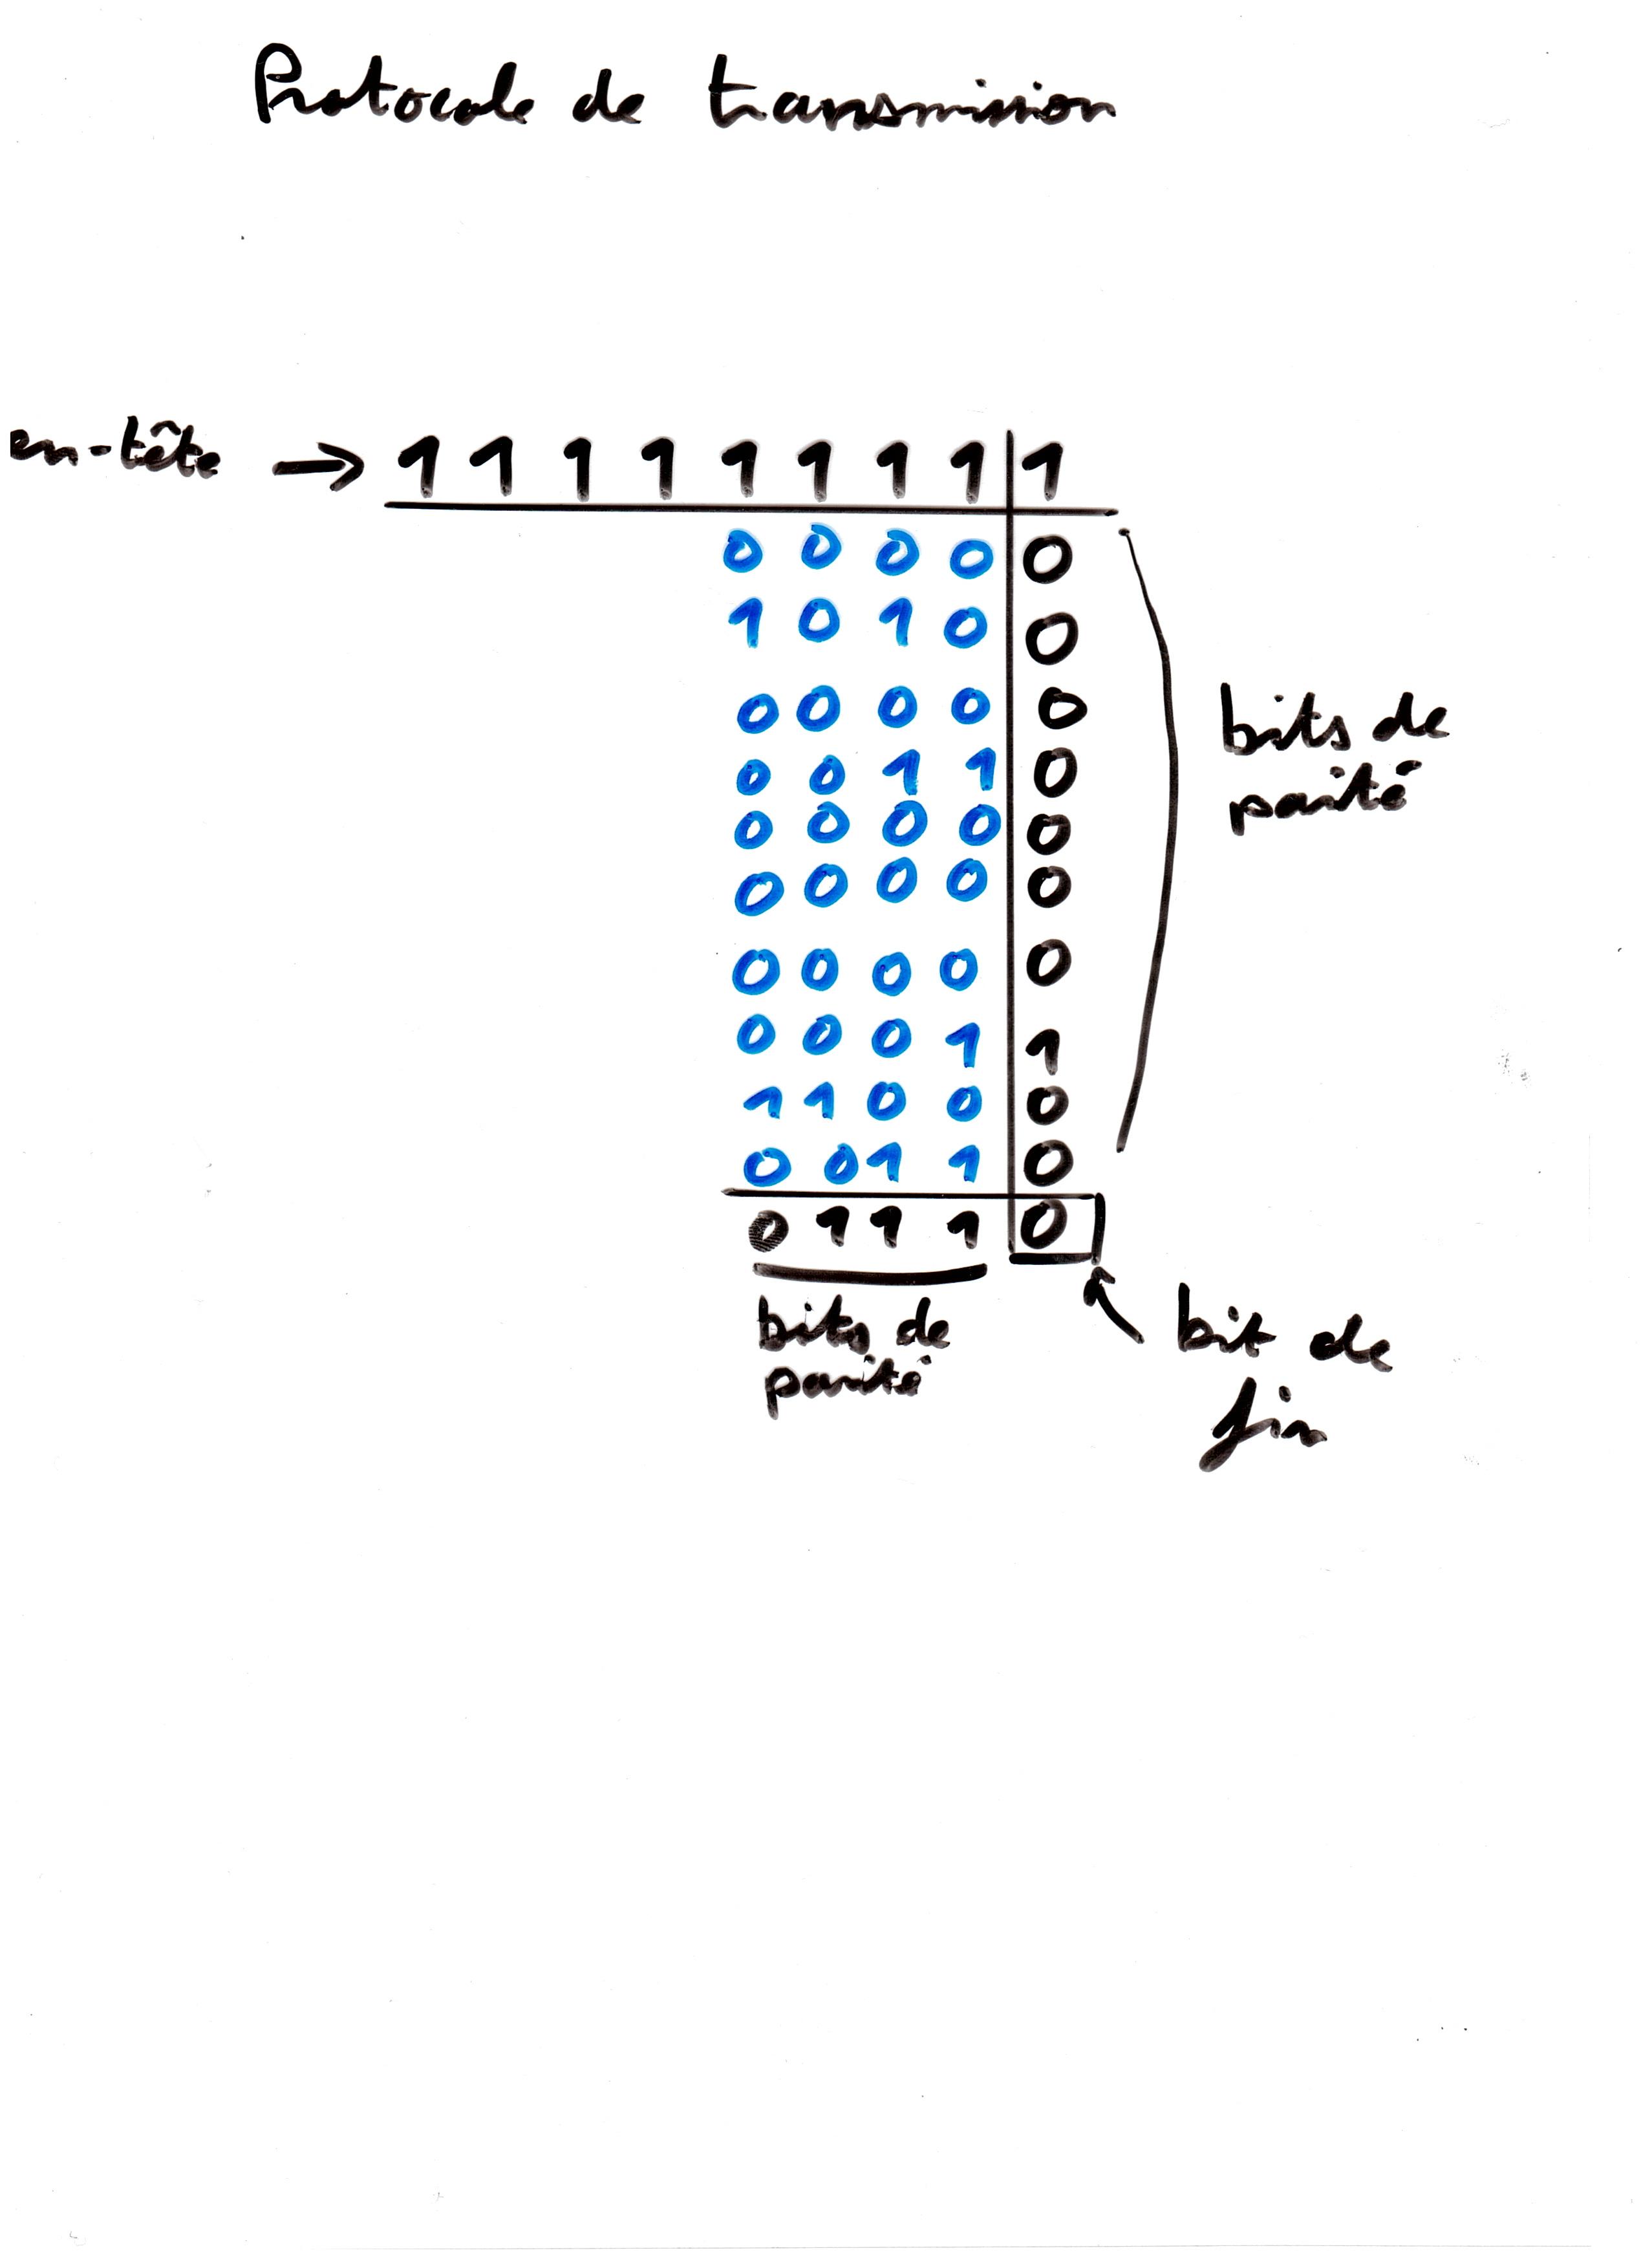 Protocole de transmission
en-tête → 1 1 1 1 1 1 1 1 1
0 0 0 0 0
1 0 1 0 0
0 0 0 0 0
0 0 1 1 0
0 0 0 0 0
0 0 0 0 0
0 0 0 0 0
0 0 0 1 1
1 1 0 0 0
0 0 1 1 0
0 1 1 1 0
bits de
parité
bits de
parité
bit de
fin